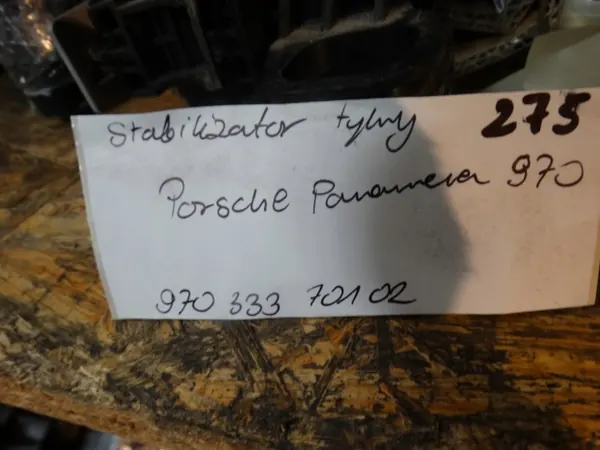 Stabilizator tylny 275
Porsche Panamera 970
970 333 701 02